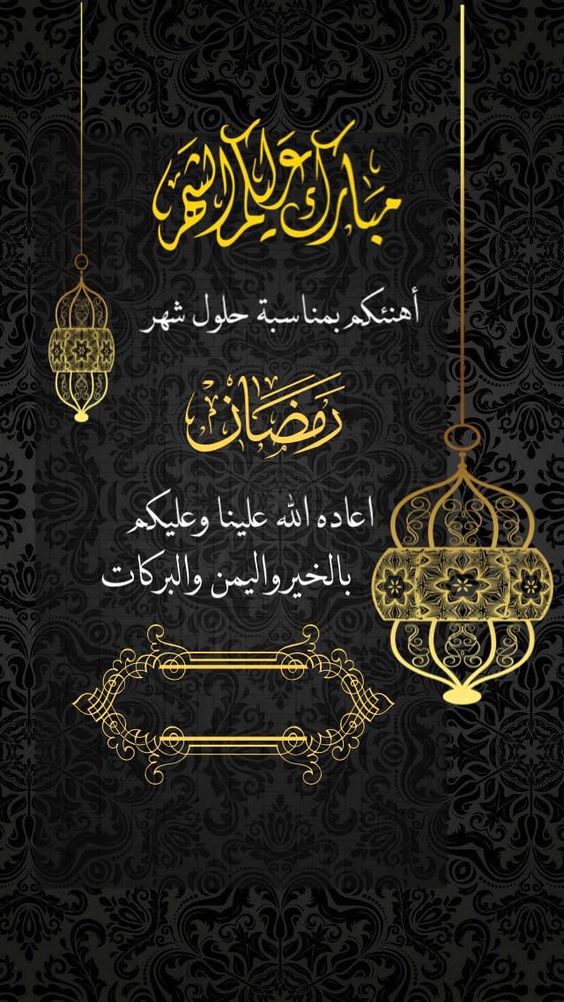 مبارك عليكم الشهر
أهنئكم بمناسبة حلول شهر
رَمَضَان
اعاده الله علينا وعليكم
بالخير واليمن والبركات